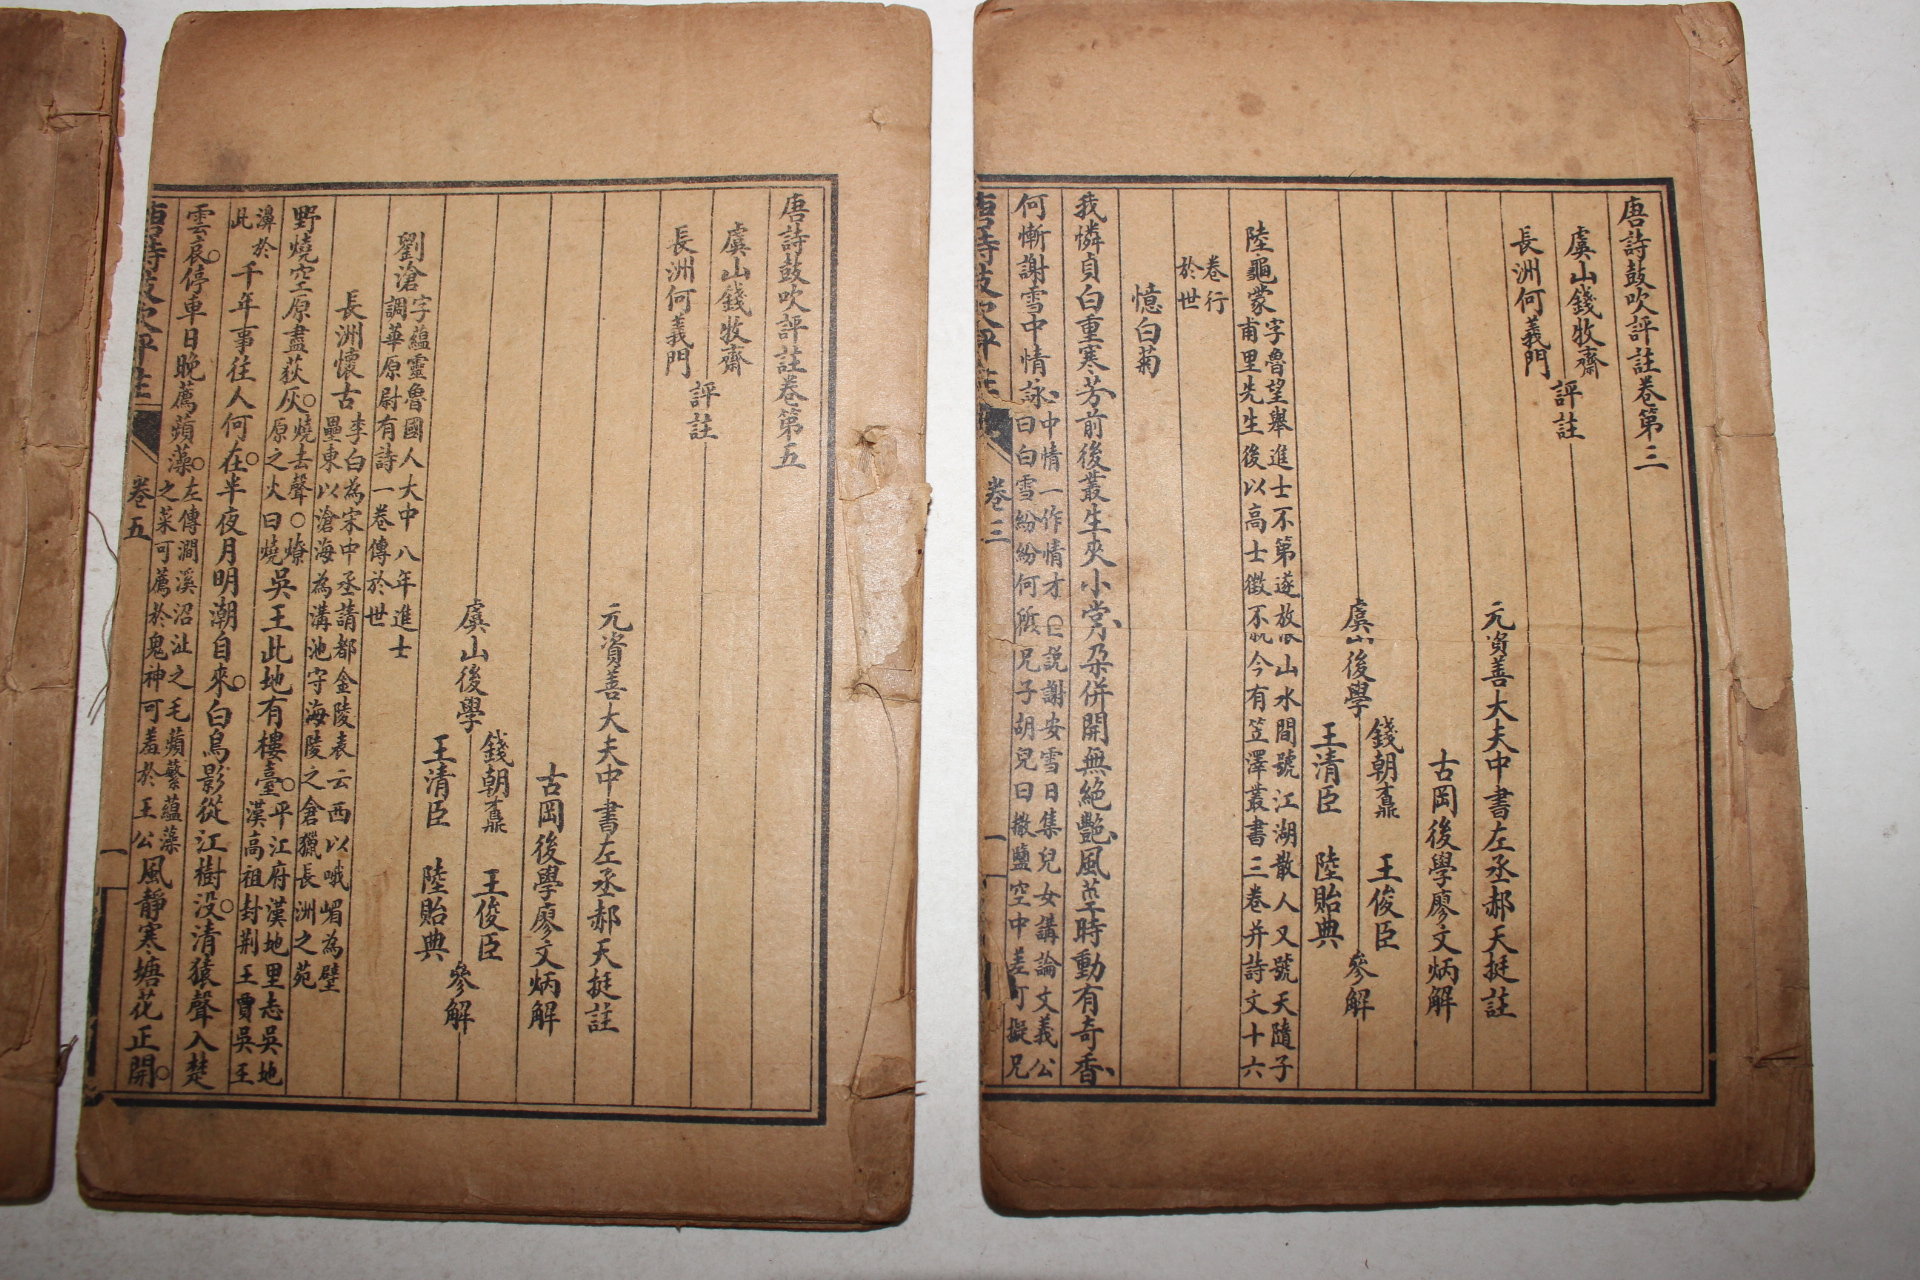 唐詩鼓吹評註卷第三
虞山錢牧齋
長洲何義門
評註
元資善大夫中書左丞郝天挺註
古岡後學廖文炳解
虞山後學
錢朝鼒 王俊臣
王清臣 陸貽典
參解
陸龜蒙
字魯望舉進士不第遂放浪山水間號江湖散人又號天隨子
甫里先生後以高士徵不就今有笠澤叢書三卷并詩文十六
卷行
於世
憶白菊
我憐貞白重寒芳前後叢生夾小堂月朶併開無絕艷風莖時動有奇香
何慚謝雪中情詠
中情一作情才○世說謝安雪日集兒女講論文義公
曰白雪紛紛何所似兄子胡兒曰撒鹽空中差可擬兄
唐詩鼓吹評註
卷三
一
唐詩鼓吹評註卷第五
虞山錢牧齋
長洲何義門
評註
元資善大夫中書左丞郝天挺註
古岡後學廖文炳解
虞山後學
錢朝鼒 王俊臣
王清臣 陸貽典
參解
劉滄
字蘊靈魯國人大中八年進士
調華原尉有詩一卷傳於世
長洲懷古
李白為宋中丞請都金陵表云西以峨嵋為壁
壘東以滄海為溝池守海陵之倉獵長洲之苑
野燒空原盡荻灰
燒去聲○燎
原之火曰燒
吳王此地有樓臺
平江府漢地里志吳地
漢高祖封荆王賈吳王
濞於
此
千年事往人何在半夜月明潮自來白鳥影從江樹没清猿聲入楚
雲哀停車日晚薦蘋藻
左傳澗溪沼沚之毛蘋蘩蘊藻
之菜可薦於鬼神可羞於王公
風靜寒塘花正開
唐詩鼓吹評註
卷五
一